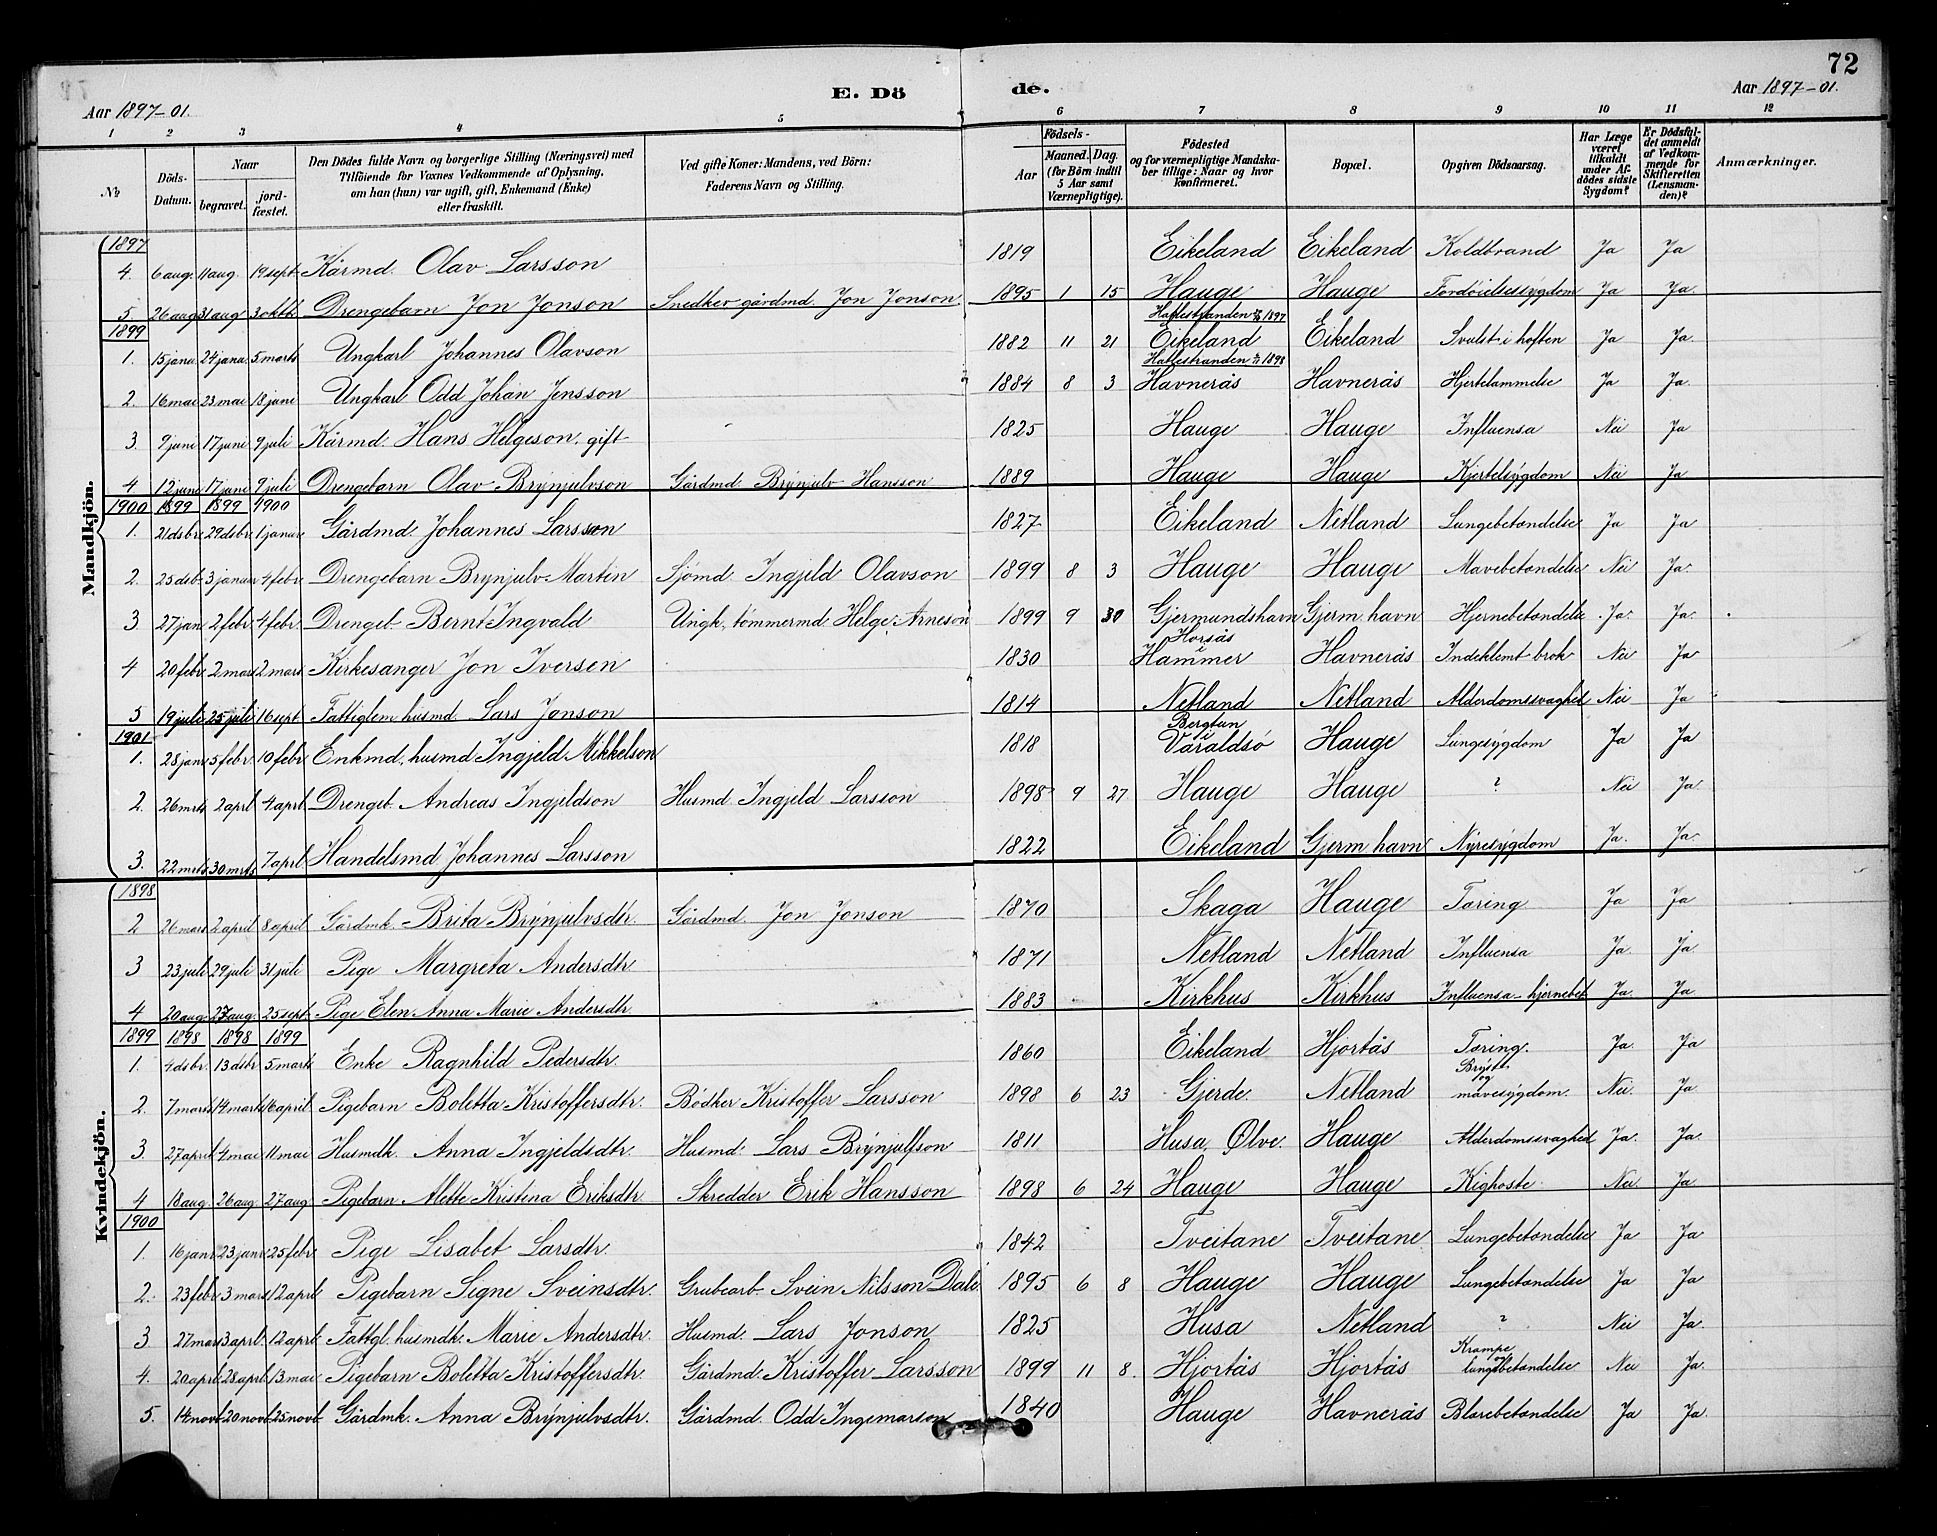 72
E. Dö de.
Aar 1897-01. Aar 1897-01.
1 2 3 4 5 6 7 8 9 10 11 12
№ Döds-Datum. Naar begravet. jord-fæstet. Den Dödes fulde Navn og borgerlige Stilling (Næringsvei) med Tilföiende for Voxnes Vedkommende af Oplysning, om han (hun) var ugift, gift, Enkemand (Enke) eller fraskilt. Ved gifte Koner: Mandens, ved Börn: Faderens Navn og Stilling. Födsels- Aar Maaned. Dag. (for Börn indtil 5 Aar samt Værnepligtige). Födested og for værnepligtige Mandska-ber tillige: Naar og hvor konfirmeret. Bopæl. Opgiven Dödsaarsag. Har Læge været tilkaldt under Af-dödes sidste Sygdom? Er Dödsfal-det anmeldt af Vedkom-mende for Skifteretten (Lensman-den)? Anmærkninger.
Mandkjön.
1897
4. 6 aug. 11 aug. 19 sept. Kårmd. Olav Larsson 1819 Eikeland Eikeland Koldbrand Ja Ja
5. 26 aug 31 aug 3 oktb. Drengebarn Jon Jonson Snedker gårdmd. Jon Jonson 1895 1 15 Hauge Hauge Fordøielsessygdom Ja Ja.
1899
1. 15 janu 24 janu. 5 marts Ungkarl Johannes Olavson 1882 11 21 Hatlestranden 1897 Eikeland Eikeland Svulst i hoften Ja Ja.
2. 16 mai 23 mai 18 juni Ungkarl Odd Johan Jensson 1884 8 3 Hatlestranden 1898 Havnerås Havnerås Hjertelammelse Ja Ja.
3. 9 juni 17 juni 9 juli Kårmd. Hans Helgeson, gift 1825 Hauge Hauge Influensa Nei Ja
4 12 juni 17 juni 9 juli Drengebarn Olav Brynjulvson Gårdmd Brynjulv Hansson 1889 Hauge Hauge Kjertelsygdom Nei Ja
1900 1899 1899 1900
1. 21 dsbr. 29 dsbr. 1 januar Gårdmd. Johannes Larsson 1827 Eikeland Netland Lungebetændelse Ja Ja
2. 25 dsb. 3 januar 4 febr. Drengebarn Brynjulv Martin Sjömd Ingjeld Olavson 1899 8 3 Hauge Hauge Mavebetændelse Nei Ja.
3 27 jan 2 febr. 4 febr. Drengeb. Bernt Ingvald Ungk, tömmermd Helge Arneson 1899 9 30 Gjermundshavn Gjerm.havn Hjernebetændelse Ja. Ja.
4 20 febr. 2 mars 2 mars Kirkesanger Jon Iversen 1830 Horsås i Hammer Havnerås Indeklemt brok Nei Ja
5 19 juli 25 juli 16 sept. Fattiglem husmd. Lars Jonson 1814 Netland Netland Alderdomssvaghed Nei Ja
1901
1. 28 janr. 5 febr. 10 febr Enkmd, husmd Ingjeld Mikkelson 1818 Bergtun i Varaldsö Hauge Lungesygdom Ja Ja
2. 26 mrts 2 aprl 4 aprl. Drengeb. Andreas Ingjeldson Husmd Ingjeld Larsson 1898 9 27 Hauge Hauge ? Nei Ja
3. 22 mrts 30 mrts 7 aprl. Handelsmd Johannes Larsson 1822 Eikeland Gjerm.havn Nyresygdom Ja. Ja.
Kvindekjön.
1898
2 26 mars 2 april 8 april Gårdmk. Brita Brynjulvsdtr. Gårdmd. Jon Jonson 1870 Skaga Hauge Tæring Ja Ja
3 23 juli 29 juli 31 juli Pige Margreta Andersdtr 1871 Netland Netland Influensa Ja. Ja.
4 20 aug. 27 aug. 25 sept. Pige Elen Anna Marie Andersdtr 1883 Kirkhus Kirkhus Influensa - hjernebet. Ja Ja
1899 1898 1898 1899
1. 4 dsbr. 13 dsbr 5 marts Enke Ragnhild Pedersdtr. 1860 Eikeland Hjortås Tæring. Ja. Ja
2. 7 marts 14 marts 16 april Pigebarn Boletta Kristoffersdtr. Bödker Kristoffer Larsson 1898 6 23 Gjerde. Netland Bryst og mavesygdom. Nei. Ja
3. 27 april 4 mai 11 mai Husmdk. Anna Ingjeldsdtr. Husmd. Lars Brynjulfson 1811 Husa, Ølve. Hauge Alderdomssvaghed Ja. Ja.
4 18 aug. 26 aug. 27 aug Pigebarn Alette Kristina Eriksdtr. Skredder Erik Hansson 1898 6 24 Hauge Hauge Kighoste Nei Ja
1900
1. 16 janr 23 janr. 25 febr. Pige Lisabet Larsdtr. 1842 Tveitane Tveitane Lungebetændelse Ja Ja
2. 23 febr 3 mars 12 aprl. Pigebarn Signe Sveinsdtr. Grubearb. Svein Nilsson Dale. 1895 6 8 Hauge Hauge Lungebetændelse Ja Ja
3 27 mars 3 aprl. 12 aprl. Fattgl. husmdk. Marie Andersdtr. Husmd. Lars Jonson 1825 Husa Netland ? Nei Ja.
4. 20 aprl. 28 aprl. 13 mai Pigebarn Boletta Kristoffersdtr. Gårdmd. Kristoffer Larsson 1899 11 8. Hjortås Hjortås Krampe og lungebetændelse Nei Ja.
5. 14 novb. 20 novb. 25 novb. Gårdmk. Anna Brynjulvsdtr. Gårdmd. Odd Ingemarson 1840 Hauge Havnerås Blærebetændelse Ja Ja.